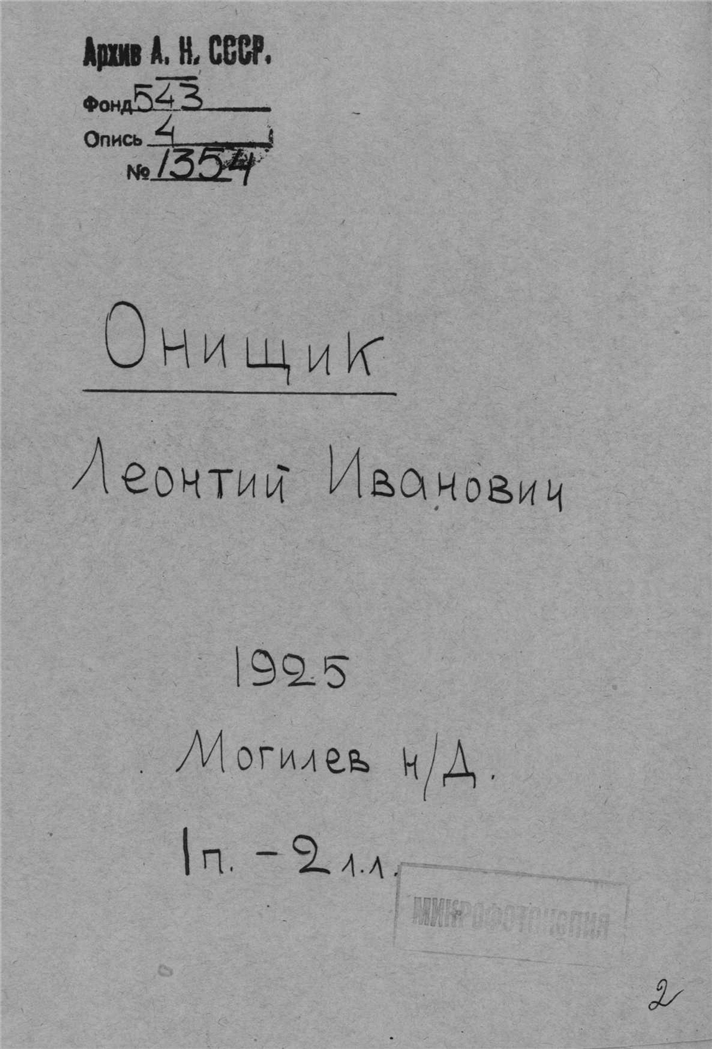 Архив А. Н. СССР.
Фонд 543
Опись 4
№ 1354
Онищик
Леонтий Иванович
1925
Могилев н/Д.
1п. – 2 л.л.
МИКРОФОТОКОПИЯ
2